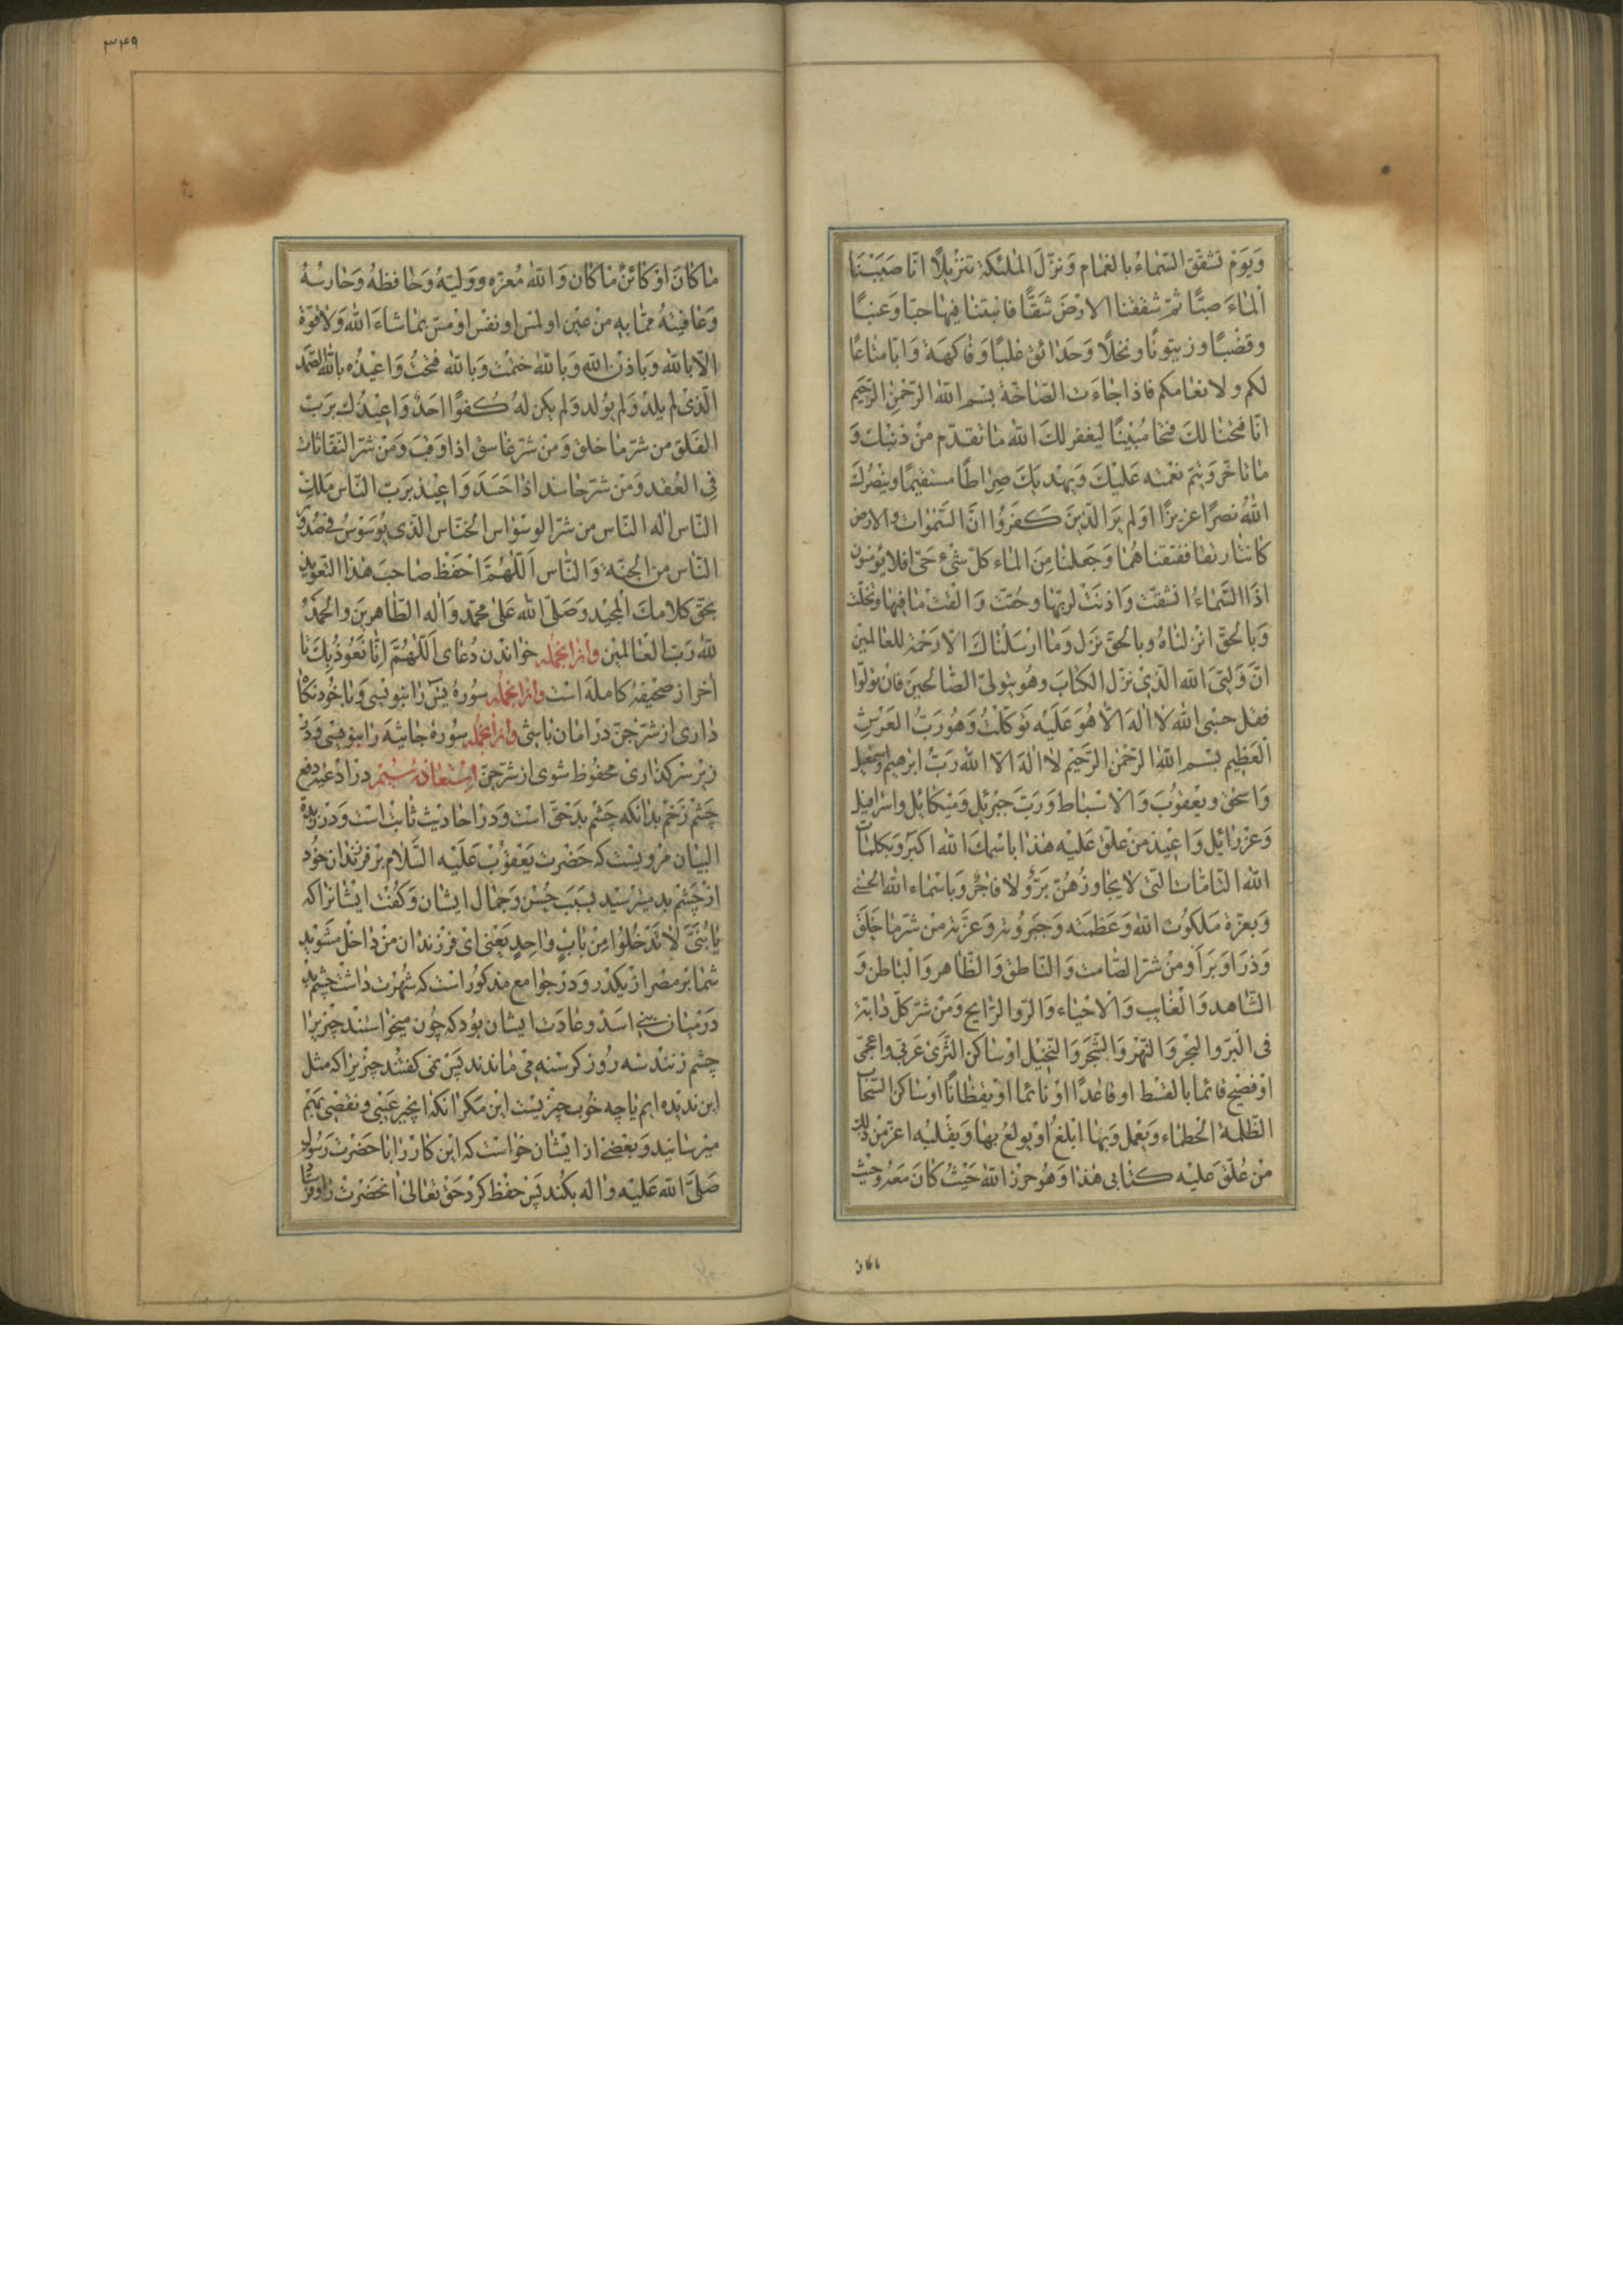 وَيَوْمَ تَشَقَّقُ السَّمٰاءُ بِالْغَمٰامِ وَنُزِّلَ الْمَلٰئِكَةُ تَنْزِيلًا اَنّٰا صَبَبْنَا
الْمٰاءَ صَبًّا ثُمَّ شَقَقْنَا الْاَرْضَ شَقًّا فَانْبَتْنٰا فيهٰا حَبًّا وَعِنَبًا
وَقَضْبًا وَزَيْتُونًا وَنَخْلًا وَحَدٰائِقَ غُلْبًا وَفٰاكِهَةً وَاَبًّا مَتٰاعًا
لَكُم وَلِانعٰامِكُم فَاِذٰا جٰاءَتِ الصّٰاخَّةُ بِسْمِ اللّٰهِ الرَّحْمٰنِ الرَّحيمِ
اِنّٰا فَتَحْنٰا لَكَ فَتْحًا مُبينًا لِيَغْفِرَ لَكَ اللّٰهُ مٰا تَقَدَّمَ مِنْ ذَنْبِكَ وَ
مٰا تَاَخَّرَ وَيُتِمَّ نِعْمَتَهُ عَلَيْكَ وَيَهْدِيَكَ صِرٰاطًا مُسْتَقيمًا وَيَنْصُرَكَ
اللّٰهُ نَصْرًا عَزيزًا اَوَلَمْ يَرَ الَّذينَ كَفَرُوا اَنَّ السَّمٰوٰاتِ وَالارض
كٰانَتٰا رَتْقًا فَفَتَقْنٰاهُمٰا وَجَعَلنٰا مِنَ المٰاءِ كُلَّ شَيْءٍ حَيٍّ افلا يؤمنون
اِذَا السَّمٰاءُ انْشَقَّتْ وَاَذِنَتْ لِرَبِّهٰا وَحُقَّتْ وَالقَتْ مٰا فيهٰا وَتَخَلَّتْ
وَبِالْحَقِّ انْزَلنٰاهُ وَبِالْحَقِّ نَزَلَ وَمٰا اَرْسَلْنٰاكَ اِلّٰا رَحْمَةً لِلعٰالَمينَ
اِنَّ وَلِيِّيَ اللّٰهُ الَّذي نَزَّلَ الْكِتٰابَ وَهُوَ يَتَوَلَّى الصّٰالِحينَ فَاِنْ تَوَلَّوْا
فَقُلْ حَسْبِيَ اللّٰهُ لٰا اِلٰهَ اِلّٰا هُوَ عَلَيْهِ تَوَكَّلْتُ وَهُوَ رَبُّ الْعَرْشِ
الْعَظيمِ بِسْمِ اللّٰهِ الرَّحْمٰنِ الرَّحيمِ لٰا اِلٰهَ اِلّٰا اللّٰهُ رَبُّ اِبْرٰهيمَ وَاِسْمٰعيلَ
وَاِسْحٰقَ وَيَعْقُوبَ وَالْاَسْبٰاطِ وَرَبُّ جَبْرَئيلَ وَميكٰائيلَ وَاِسْرٰافيلَ
وَعِزْرٰائيلَ وَاُعيذُ مَنْ عُلِّقَ عَلَيْهِ هٰذٰا بِاسْمِكَ اللّٰهُ اَكْبَرُ وَبِكَلِمٰاتِ
اللّٰهِ التّٰامّٰاتِ الَّتي لٰا يُجٰاوِزُهُنَّ بَرٌّ وَلٰا فٰاجِرٌ وَبِاَسْمٰاءِ اللّٰهِ الْحُسْنى
وَبِعِزَّةِ مَلَكُوتِ اللّٰهِ وَعَظَمَتِهِ وَجَبَرُوتِهِ وَعِزَّتِهِ مِنْ شَرِّ مٰا خَلَقَ
وَذَرَاَ وَبَرَاَ وَمِنْ شَرِّ الصّٰامِتِ وَالنّٰاطِقِ وَالظّٰاهِرِ وَالْبٰاطِنِ وَ
الشّٰاهِدِ وَالْغٰايِبِ وَالْاَحْيٰاءِ وَمِنْ شَرِّ كُلِّ دٰابَّةٍ
فِي الْبَرِّ وَالْبَحْرِ وَالنَّهْرِ وَالشَّجَرِ وَالنَّخيلِ اَوْ سٰاكِنِ الثَّرى عَرَبِيٍّ وَاَعْجَمِيٍّ
اَوْ فَصيحٍ قٰائِمًا بِالْقِسْطِ اَوْ قٰاعِدًا اَوْ نٰائِمًا اَوْ يَقْظٰانًا اَوْ سٰاكِنِ السَّحٰابِ
الظُّلْمَةِ وَيَعْمَلُ وَبِهٰا اَوْ يُولَعُ بِهٰا
مَنْ عُلِّقَ عَلَيْهِ كِتٰابي هٰذٰا وَهُوَ حِرْزُ اللّٰهِ حَيْثُ كٰانَ
مٰا كٰانَ
٣٤٩
مٰا كٰانَ اَوْ كٰائِنٌ مٰا كٰانَ وَاللّٰهُ مُعِزُّهُ وَوَلِيُّهُ وَحٰافِظُهُ وَحٰارِسُهُ
مِمّٰا بِهِ مِنْ عَيْنٍ اَوْ لَمْسٍ اَوْ نَفْسٍ اَوْ مَسٍّ بِمٰا شٰاءَ اللّٰهُ وَلٰا قُوَّةَ
اِلّٰا بِاللّٰهِ وَبِاِذْنِ اللّٰهِ وَبِاللّٰهِ خَتَمْتُ وَبِاللّٰهِ فَتَحْتُ وَاُعيذُهُ بِاللّٰهِ الصَّمَدِ
الَّذي لَمْ يَلِدْ وَلَمْ يُولَدْ وَلَمْ يَكُنْ لَهُ كُفُوًا اَحَدٌ وَاُعيذُكَ بِرَبِّ
الْفَلَقِ مِنْ شَرِّ مٰا خَلَقَ وَمِنْ شَرِّ غٰاسِقٍ اِذٰا وَقَبَ وَمِنْ شَرِّ النَّفّٰاثٰاتِ
فِي الْعُقَدِ وَمِنْ شَرِّ حٰاسِدٍ اِذٰا حَسَدَ وَاُعيذُ بِرَبِّ النّٰاسِ مَلِكِ
النّٰاسِ اِلٰهِ النّٰاسِ مِنْ شَرِّ الْوَسْوٰاسِ الْخَنّٰاسِ الَّذي يُوَسْوِسُ في صُدُورِ
النّٰاسِ مِنَ الْجِنَّةِ وَالنّٰاسِ اَللّٰهُمَّ احْفَظْ صٰاحِبَ هٰذَا التَّعْويذِ
بِحَقِّ كَلٰامِكَ الْمَجيدِ وَصَلَّى اللّٰهُ عَلى مُحَمَّدٍ وَاٰلِهِ الطّٰاهِرينَ وَالْحَمْدُ
لِلّٰهِ رَبِّ الْعٰالَمينَ وازانجمله خوٰاندن دُعٰاى اَللّٰهُمَّ اِنّٰا نَعُوذُ بِكَ تٰا
اٰخر از صحيفهٔ كامله است وازانجمله سورهٔ يسٓ رٰا بنويسى و با خود نگاه
دٰارى از شرّ جنّ در امان باشى وازانجمله سورهٔ جٰاثيه رٰا بنويسى و در
زير سر گذارى محفوظ شوى از شرّ جنّ استعاذهٔ سيّم در ادعيهٔ دفع
چشم زخم بدانكه چشم بد حقّ است و در احاديث ثابت است و در زبدة
البيان مرويست كه حضرت يعقوب عليه السّلام بر فرزندان خود
از چشم بد ميترسيد بسبب حسن و جمال ايشان و گفت ايشانرا كه
يٰا بَنِيَّ لٰا تَدْخُلُوا مِنْ بٰابٍ وٰاحِدٍ يعنى اى فرزندان من داخل مشويد
شما بر مصر از يكدر و در جوامع مذكور است كه شهرت داشت چشم بد
در ميان بنى اسد و عادت ايشان بود كه چون ميخواستند چيزيرا
چشم زنند سه روز گرسنه مى ماندند پس نمى گفتند چيزيرا كه مثل
اين نديده ايم يا چه خوب چيزيست اين مگر انكه بآنچيز عيبى و نقصى بهم
ميرسانيد و بعضى از ايشان خواست كه اين كار را با حضرت رسول
صَلَّى اللّٰه عَلَيْهِ وٰاله بكند پس حفظ كرد حق تعالى انحضرت را